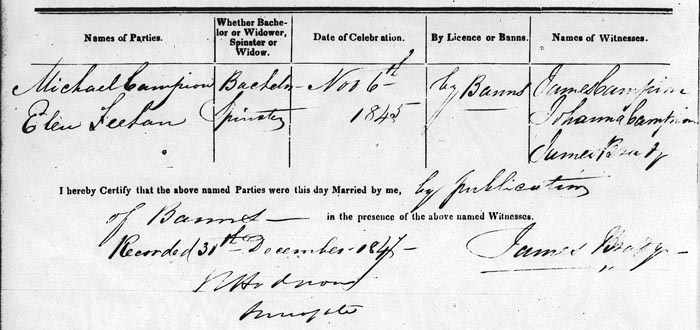 Names of Parties.
Whether Bache-
lor or Widower,
Spinster or
Widow.
Date of Celebration.
By Licence or Banns.
Names of Witnesses.
Michael Campion Bachelor Nov 6th by Banns James Campion
Elen Leehan Spinster 1845 Johanna Campion
James Brady
I hereby Certify that the above named Parties were this day Married by me, by publication
of Banns — in the presence of the above named Witnesses.
Recorded 31st December 1847 James Brady